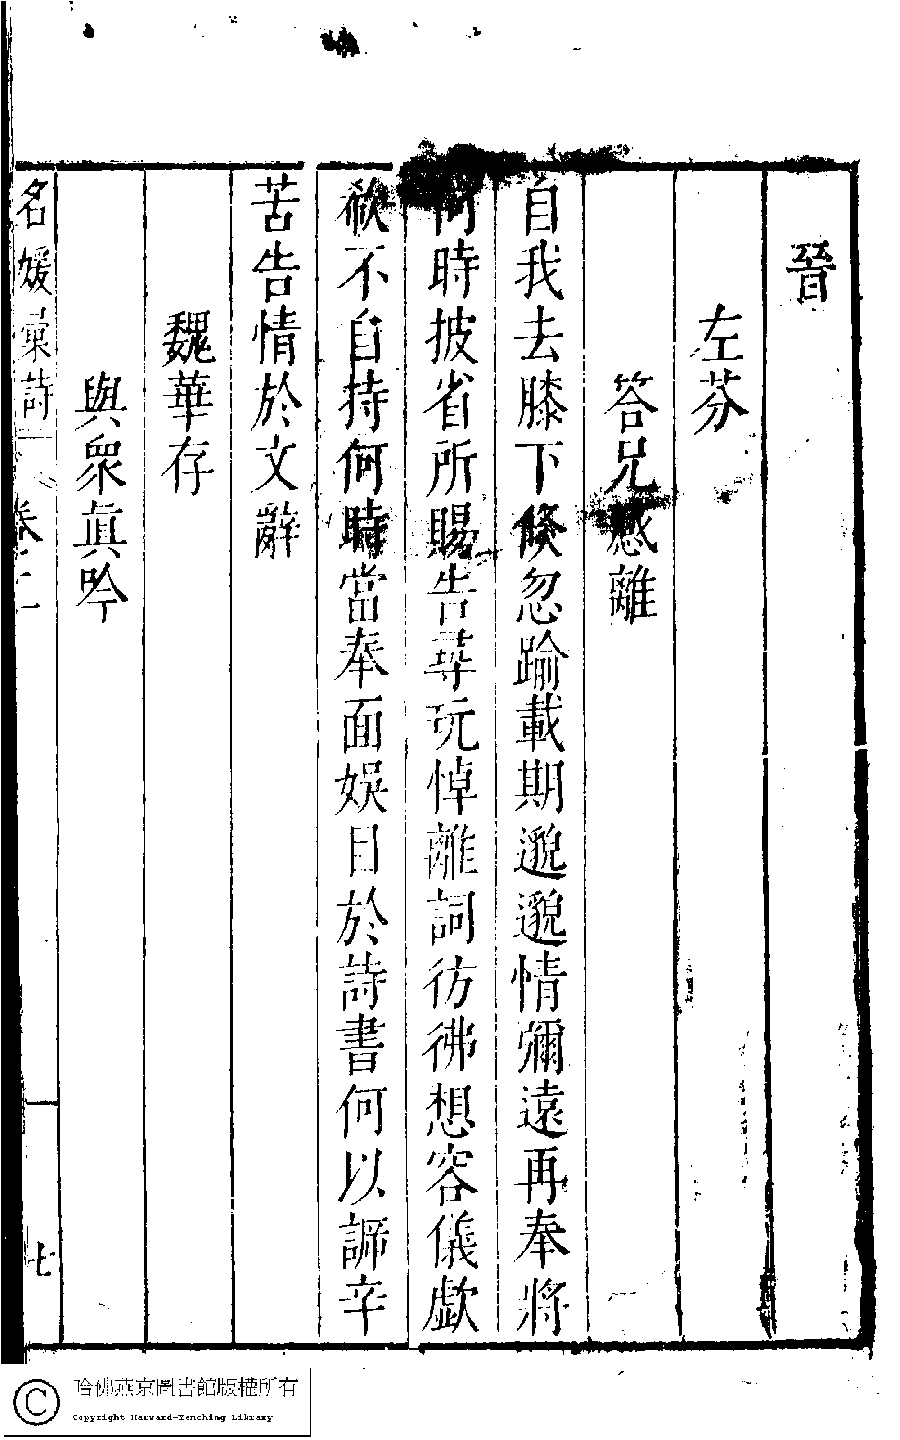 晉
左芬
答兄感離
自我去膝下倐忽踰載期邈邈情彌遠再奉將
何時披省所賜告尋玩悼離詞彷彿想容儀歔
欷不自持何時當奉面娛目於詩書何以訴辛
苦告情於文辭
魏華存
與衆眞吟
名媛彙詩 卷二 七
哈佛燕京圖書館版權所有
Copyright Harvard-Yenching Library